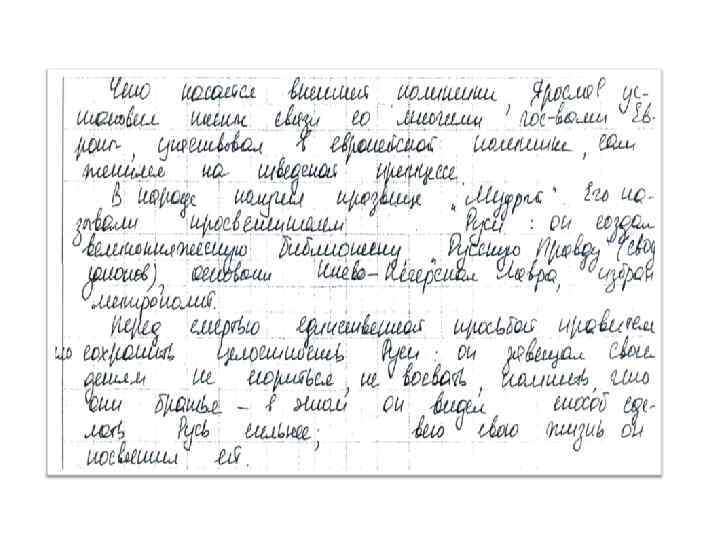 Что касается внешней политики, Ярослав ус-
тановил тесные связи со многими гос-вами Ев-
ропы, участвовал в европейской политике, сам
женился на шведской принцессе.
В народе получил прозвище „Мудрый". Его на-
зывали просветителем Руси: он создал
великокняжескую библиотеку, „Русскую Правду" (свод
законов), основали Киево-Печерская Лавра, избран
митрополит.
Перед смертью единственной просьбой правителя
сохранить целостность Руси: он завещал своим
детям не ссориться, не воевать, помнить, что
они братья – в этом он видел способ сде-
лать Русь сильнее; всю свою жизнь он
посвятил ей.